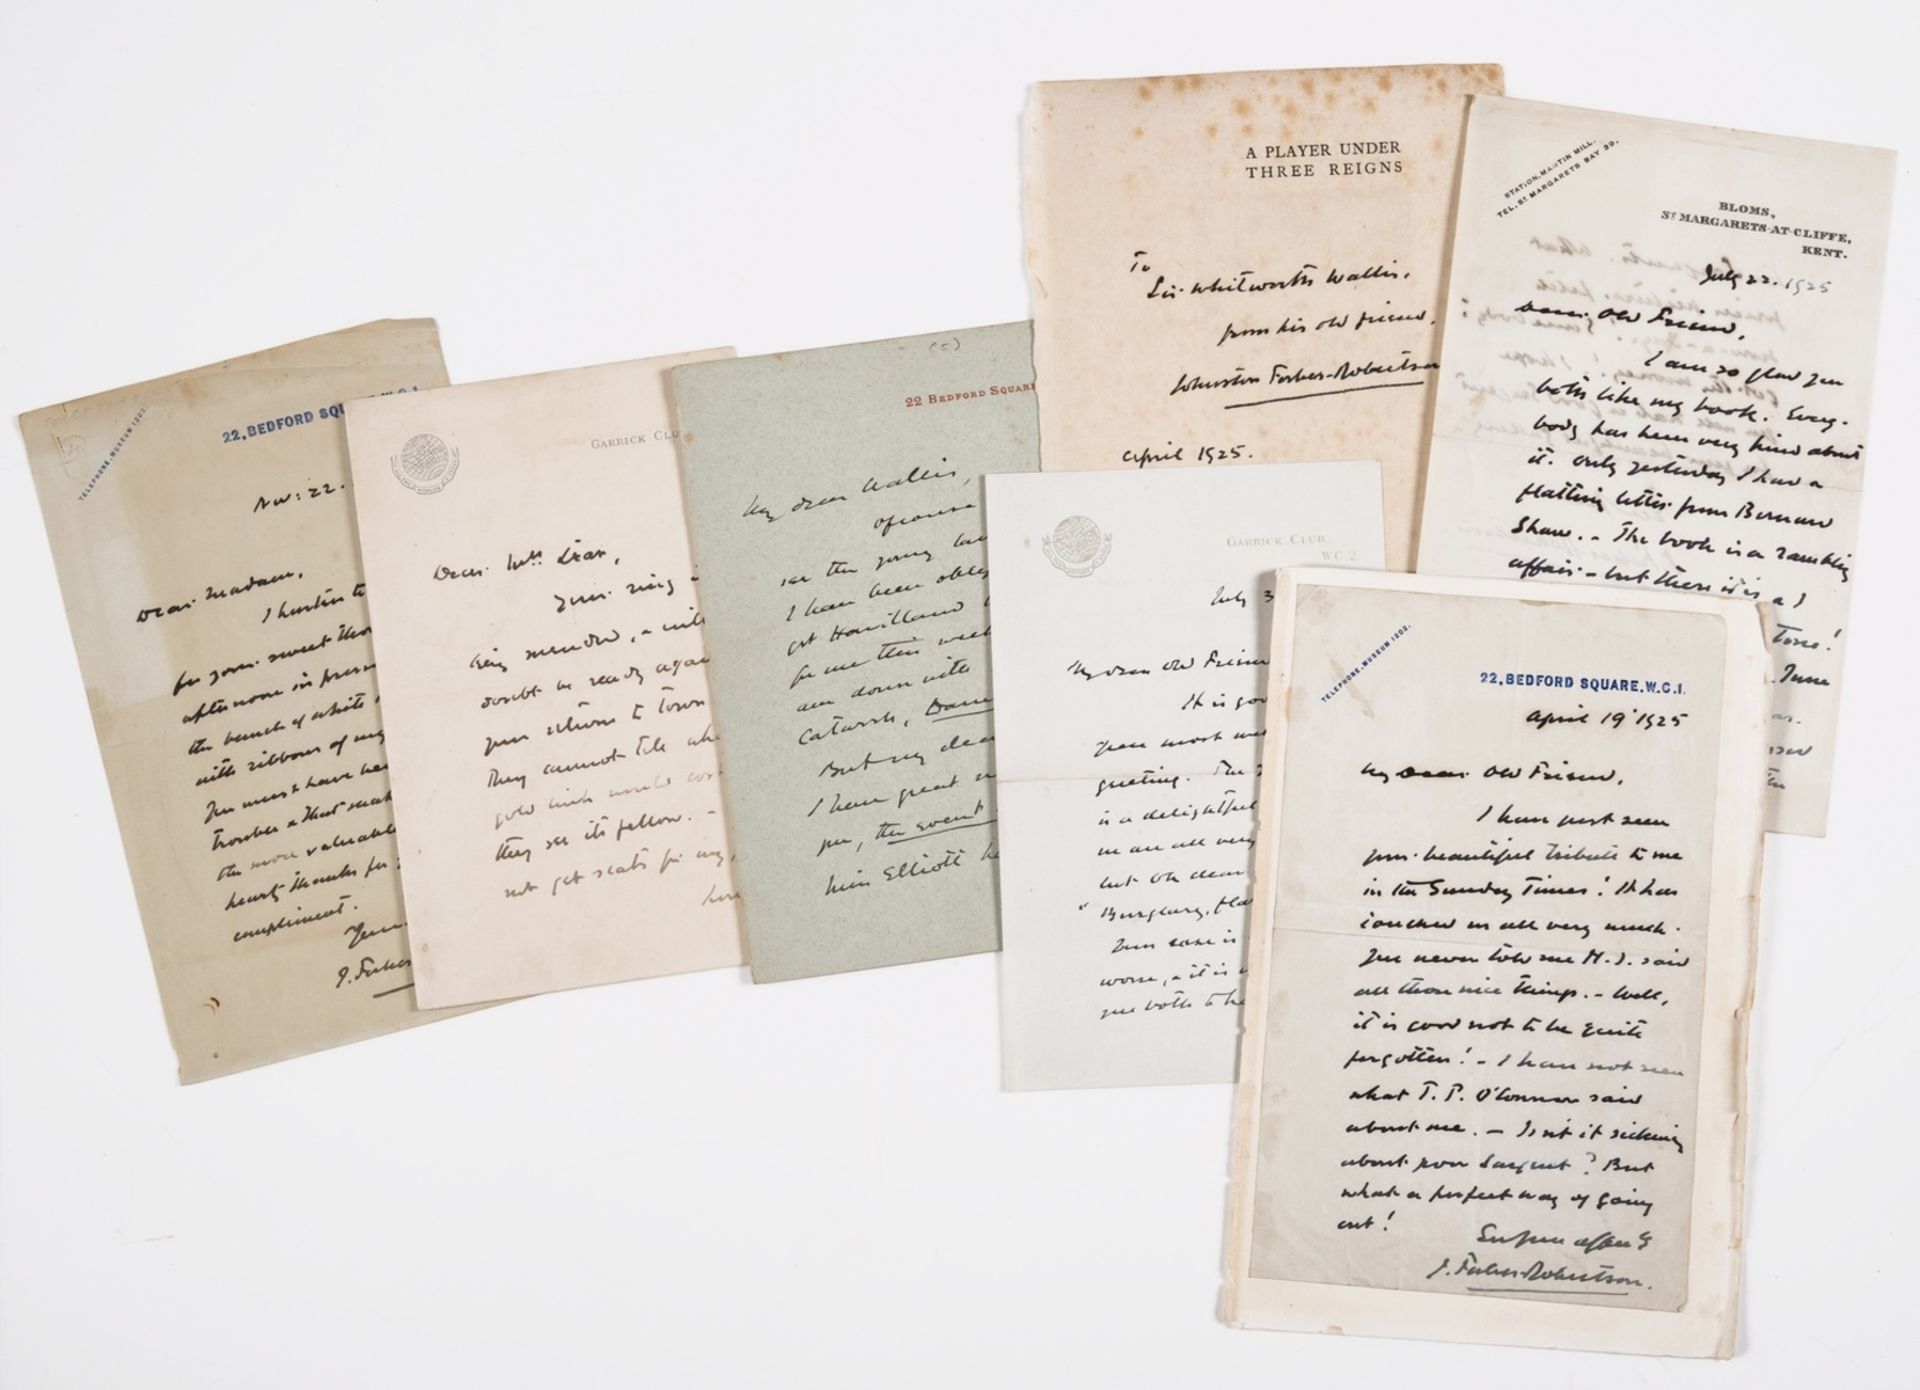 TELEPHONE, MUSEUM 1202.
22, BEDFORD SQU W.C.1
Nov: 22.
Dear Madam,
I hasten to
for your sweet
afternoon in
the bunch of white
with ribbons of my
You must have
trouble & that
the more valuable
hearty thanks for
compliment.
J. Forbes
GARRICK CLU
Dear Mrs
Your ring
being mended, & will
doubt be ready
your return to Town
They cannot tell
gold
they see its fellow. -
not get seats for my
(5)
22 BEDFORD SQUAR
My dear Wallis,
Of course
see the young
I have been
get Haviland
for me this week
am down with
Catarrh,
But my dear
I have great
you, the event
Miss Elliott
A PLAYER UNDER
THREE REIGNS
To
Sir Whitworth Wallis.
from his old friend.
Johnston Forbes-Robertson
April 1925.
GARRICK CLUB,
W.C.2
July 3
My dear Old Friend
It is
Your most
greeting. The
is a delightful
we are all very
but oh dear
"Burglary,
Your case is
worse, & it is
you both to
STATION, MARTIN MILL.
TEL. ST MARGARETS BAY 39.
BLOMS,
ST MARGARETS-AT-CLIFFE,
KENT.
July 22. 1925
Dear Old Friend,
I am so glad you
both like my book. Every-
body has been very kind about
it. Only yesterday I had a
flattering letter from Bernard
Shaw. - The book is a rambling
affair - but there it is & I
Town!
June
TELEPHONE, MUSEUM 1202.
22, BEDFORD SQUARE, W.C.1.
April 19 1925
My dear Old Friend,
I have just seen
your beautiful tribute to me
in the Sunday Times! It has
touched us all very much.
You never told me M. J. said
all those nice things. - Well,
it is good not to be quite
forgotten! - I have not seen
what T. P. O'Connor said
about me. - Isn't it sickening
about poor Sargent? But
what a perfect way of going
out!
J. Forbes-Robertson.